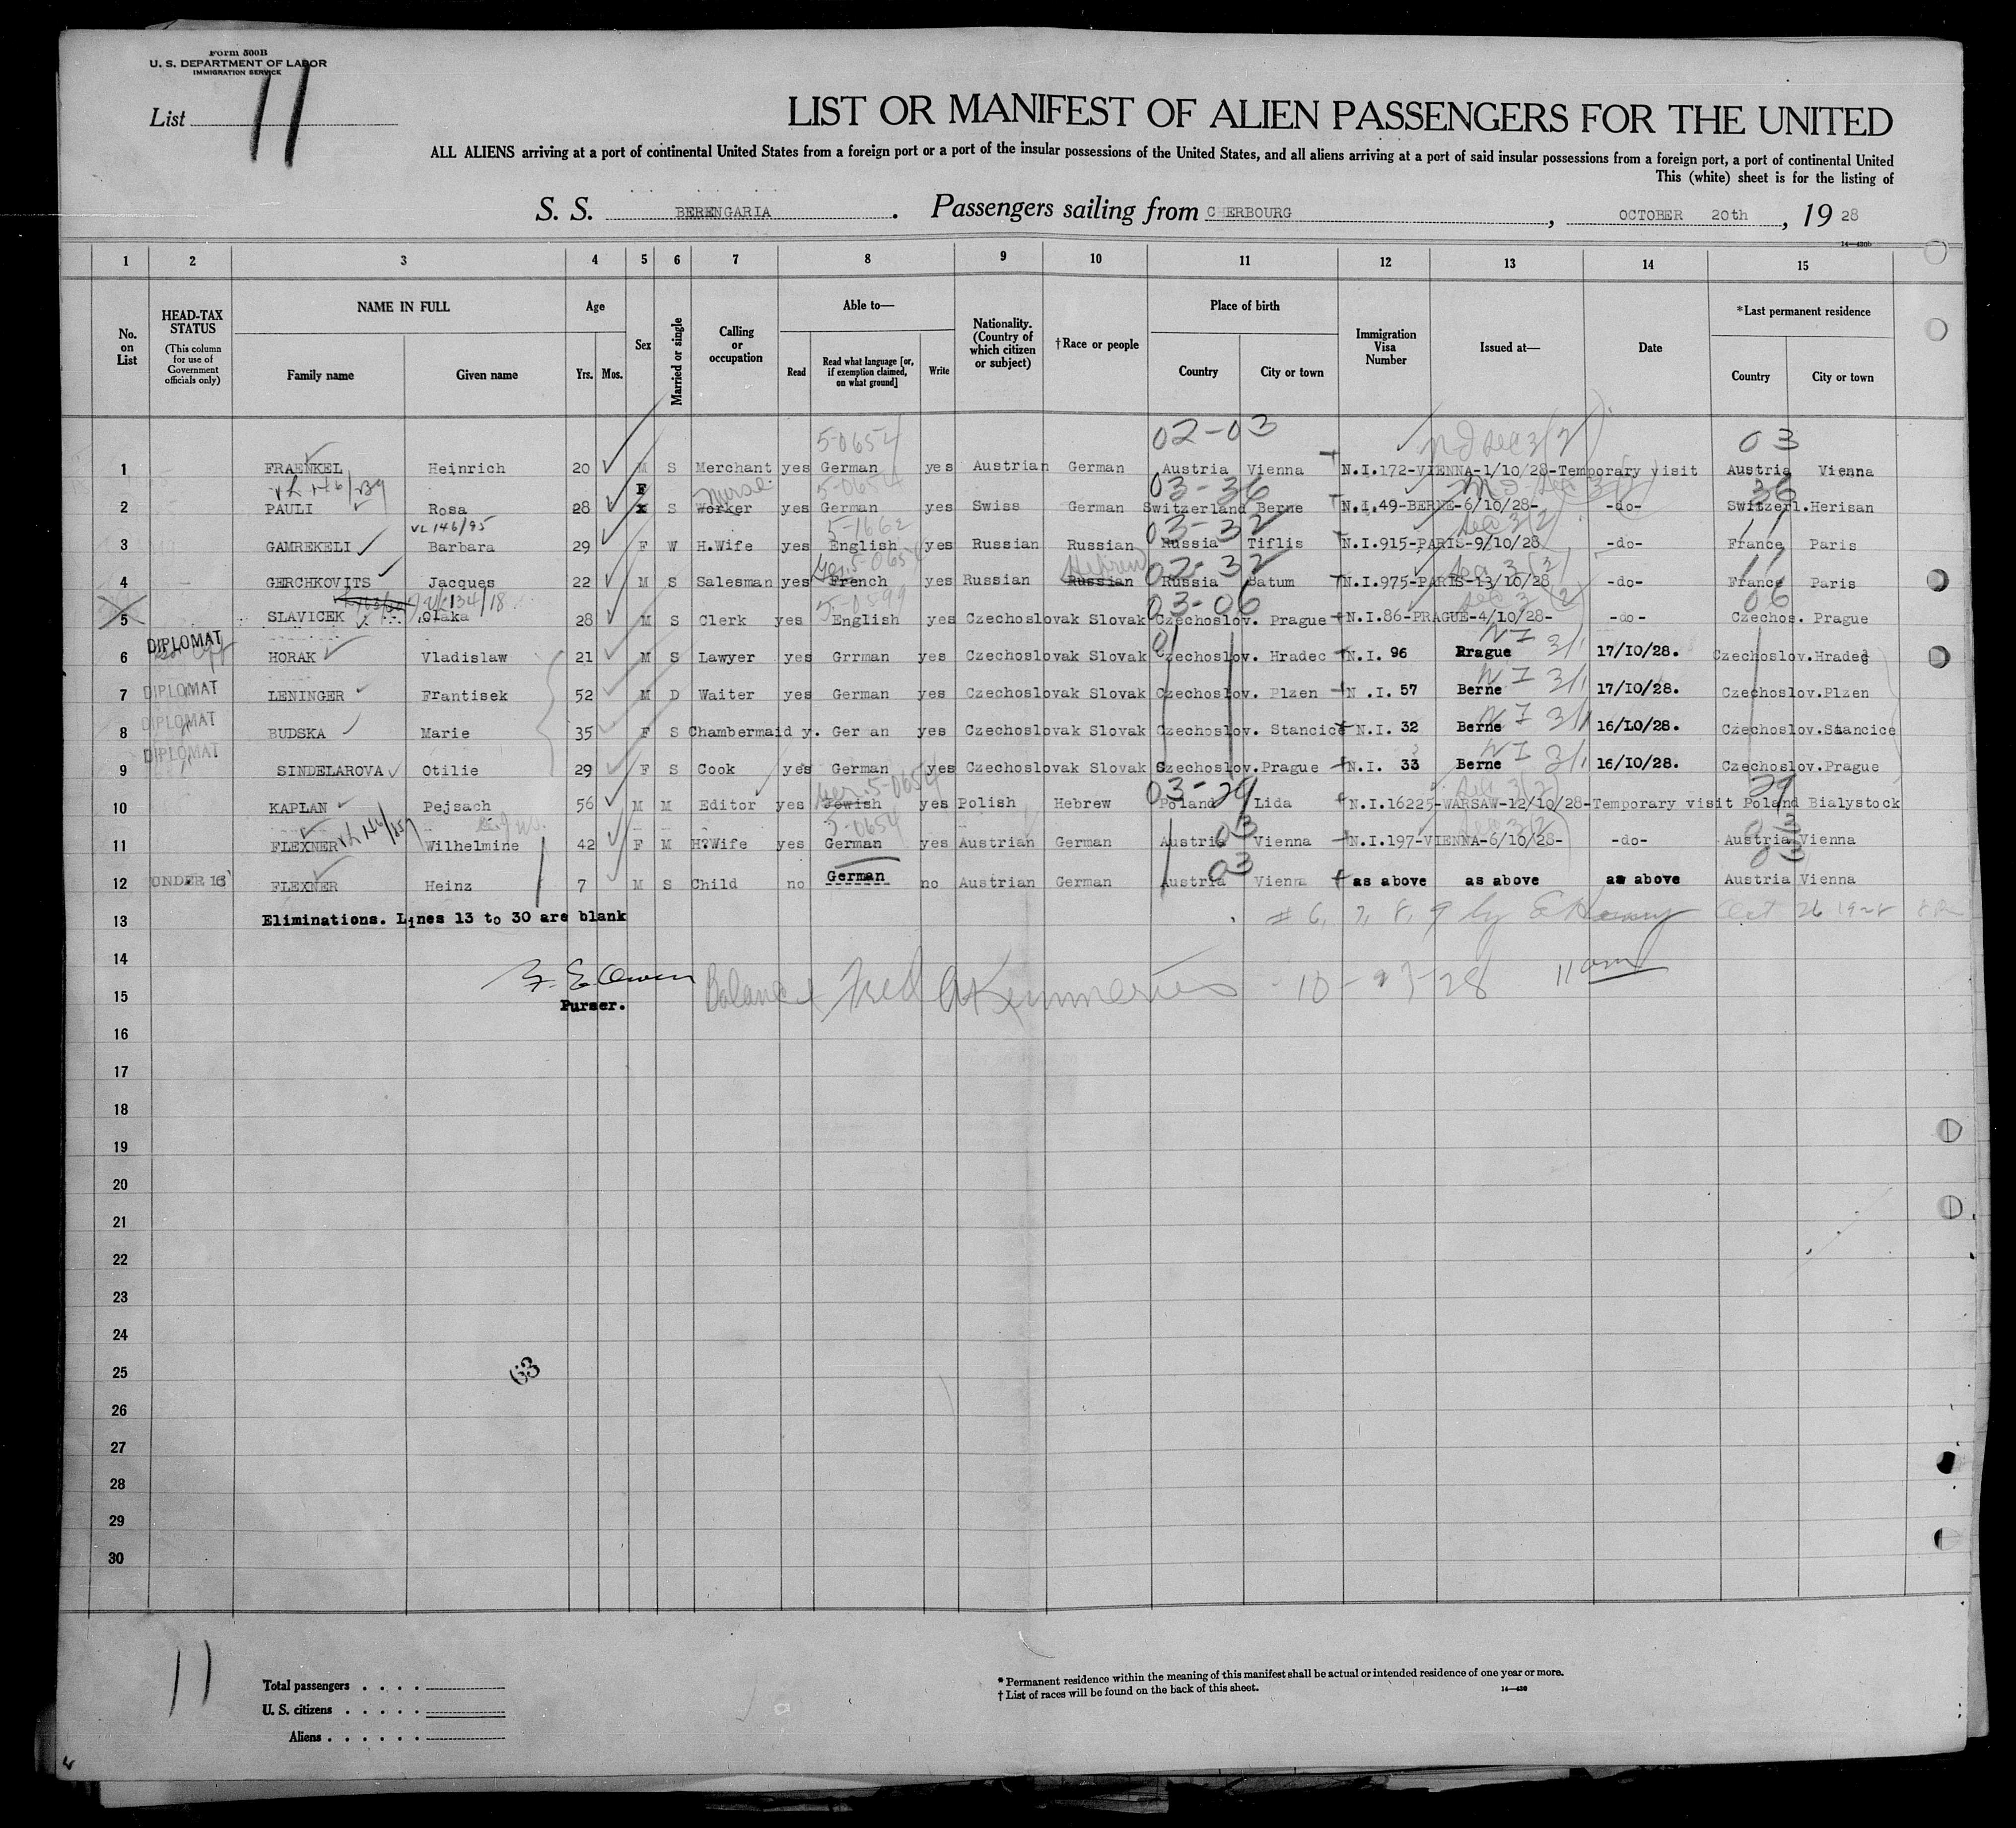 Form 500B
U. S. DEPARTMENT OF LABOR
IMMIGRATION SERVICE
List 11
LIST OR MANIFEST OF ALIEN PASSENGERS FOR THE UNITED
ALL ALIENS arriving at a port of continental United States from a foreign port or a port of the insular possessions of the United States, and all aliens arriving at a port of said insular possessions from a foreign port, a port of continental United
This (white) sheet is for the listing of
S. S. BERENGARIA. Passengers sailing from C ERBOURG, OCTOBER 20th, 19 28
14—430b
1 2 3 4 5 6 7 8 9 10 11 12 13 14 15
No. on List
HEAD-TAX STATUS (This column for use of Government officials only)
NAME IN FULL Family name Given name
Age Yrs. Mos.
Sex
Married or single
Calling or occupation
Able to— Read Read what language [or, if exemption claimed, on what ground] Write
Nationality. (Country of which citizen or subject)
†Race or people
Place of birth Country City or town
Immigration Visa Number
Issued at—
Date
*Last permanent residence Country City or town
5-0654 02-03 03
1 FRAENKEL Heinrich 20 M S Merchant yes German yes Austrian German Austria Vienna N.I.172-VIENNA-1/10/28-Temporary visit Austria Vienna
F Nurse 5-0654 03-36 36
2 PAULI Rosa 28 x S Worker yes German yes Swiss German Switzerland Berne N.I.49-BERNE-6/10/28- -do- Switzerl.Herisan
VL 146/95 5-1662 03-32 11
3 GAMREKELI Barbara 29 F W H.Wife yes English yes Russian Russian Russia Tiflis N.I.915-PARIS-9/10/28 -do- France Paris
Hebrew 02-32 11
4 GERCHKOVITS Jacques 22 M S Salesman yes French yes Russian Russian Russia Batum N.I.975-PARIS-13/10/28 -do- France Paris
5-0599 03-06 06
5 SLAVICEK Olaka 28 M S Clerk yes English yes Czechoslovak Slovak Czechoslov. Prague N.I.86-PRAGUE-4/10/28- -do- Czechos. Prague
DIPLOMAT
6 HORAK Vladislaw 21 M S Lawyer yes Grrman yes Czechoslovak Slovak Czechoslov. Hradec N.I. 96 Prague NI 3/1 17/10/28. Czechoslov.Hradec
DIPLOMAT
7 LENINGER Frantisek 52 M D Waiter yes German yes Czechoslovak Slovak Czechoslov. Plzen N .I. 57 Berne NI 3/1 17/10/28. Czechoslov.Plzen
DIPLOMAT
8 BUDSKA Marie 35 F S Chambermaid y. Ger an yes Czechoslovak Slovak Czechoslov. Stancice N.I. 32 Berne NI 3/1 16/10/28. Czechoslov.Stancice
DIPLOMAT
9 SINDELAROVA Otilie 29 F S Cook yes German yes Czechoslovak Slovak Czechoslov.Prague N.I. 33 Berne NI 3/1 16/10/28. Czechoslov.Prague
5-0654 03-29 29
10 KAPLAN Pejsach 56 M M Editor yes Jewish yes Polish Hebrew Poland Lida N.I.16225-WARSAW-12/10/28-Temporary visit Poland Bialystock
5-0654 03 03
11 FLEXNER Wilhelmine 42 F M H?Wife yes German yes Austrian German Austria Vienna N.I.197-VIENNA-6/10/28- -do- Austria Vienna
03 03
12 UNDER 16 FLEXNER Heinz 7 M S Child no German no Austrian German Austria Vienna as above as above as above Austria Vienna
13 Eliminations. Lines 13 to 30 are blank # 6, 7, 8, 9 by Oct 26 1928
14
15 Purser. Balance 28 11 am
16
17
18
19
20
21
22
23
24
25 63
26
27
28
29
30
11
Total passengers
U. S. citizens
Aliens
* Permanent residence within the meaning of this manifest shall be actual or intended residence of one year or more.
† List of races will be found on the back of this sheet.
14—430